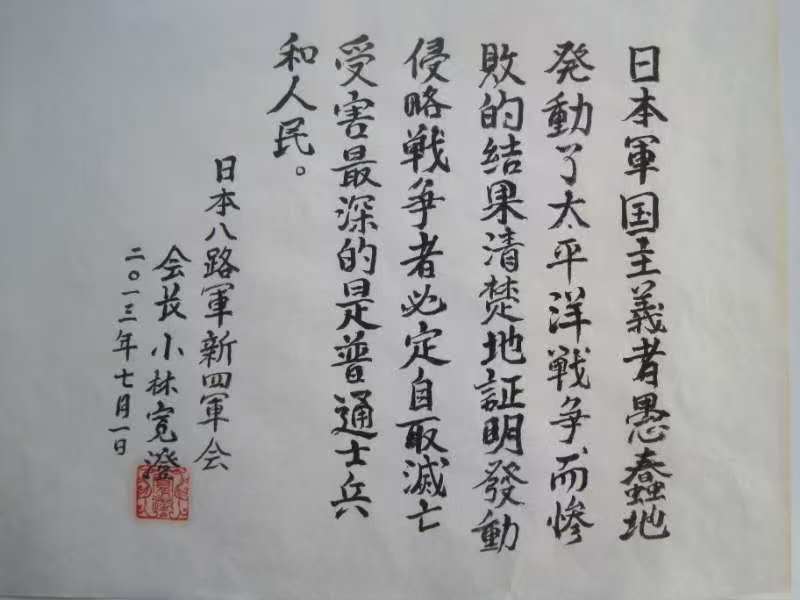 日本軍国主義者愚蠢地
発動了太平洋戦争,而惨
敗的結果清楚地証明發動
侵略戦争者必定自取滅亡
受害最深的是普通士兵
和人民。
日本八路軍新四軍会
会长 小林寛澄
二〇一三年七月一日